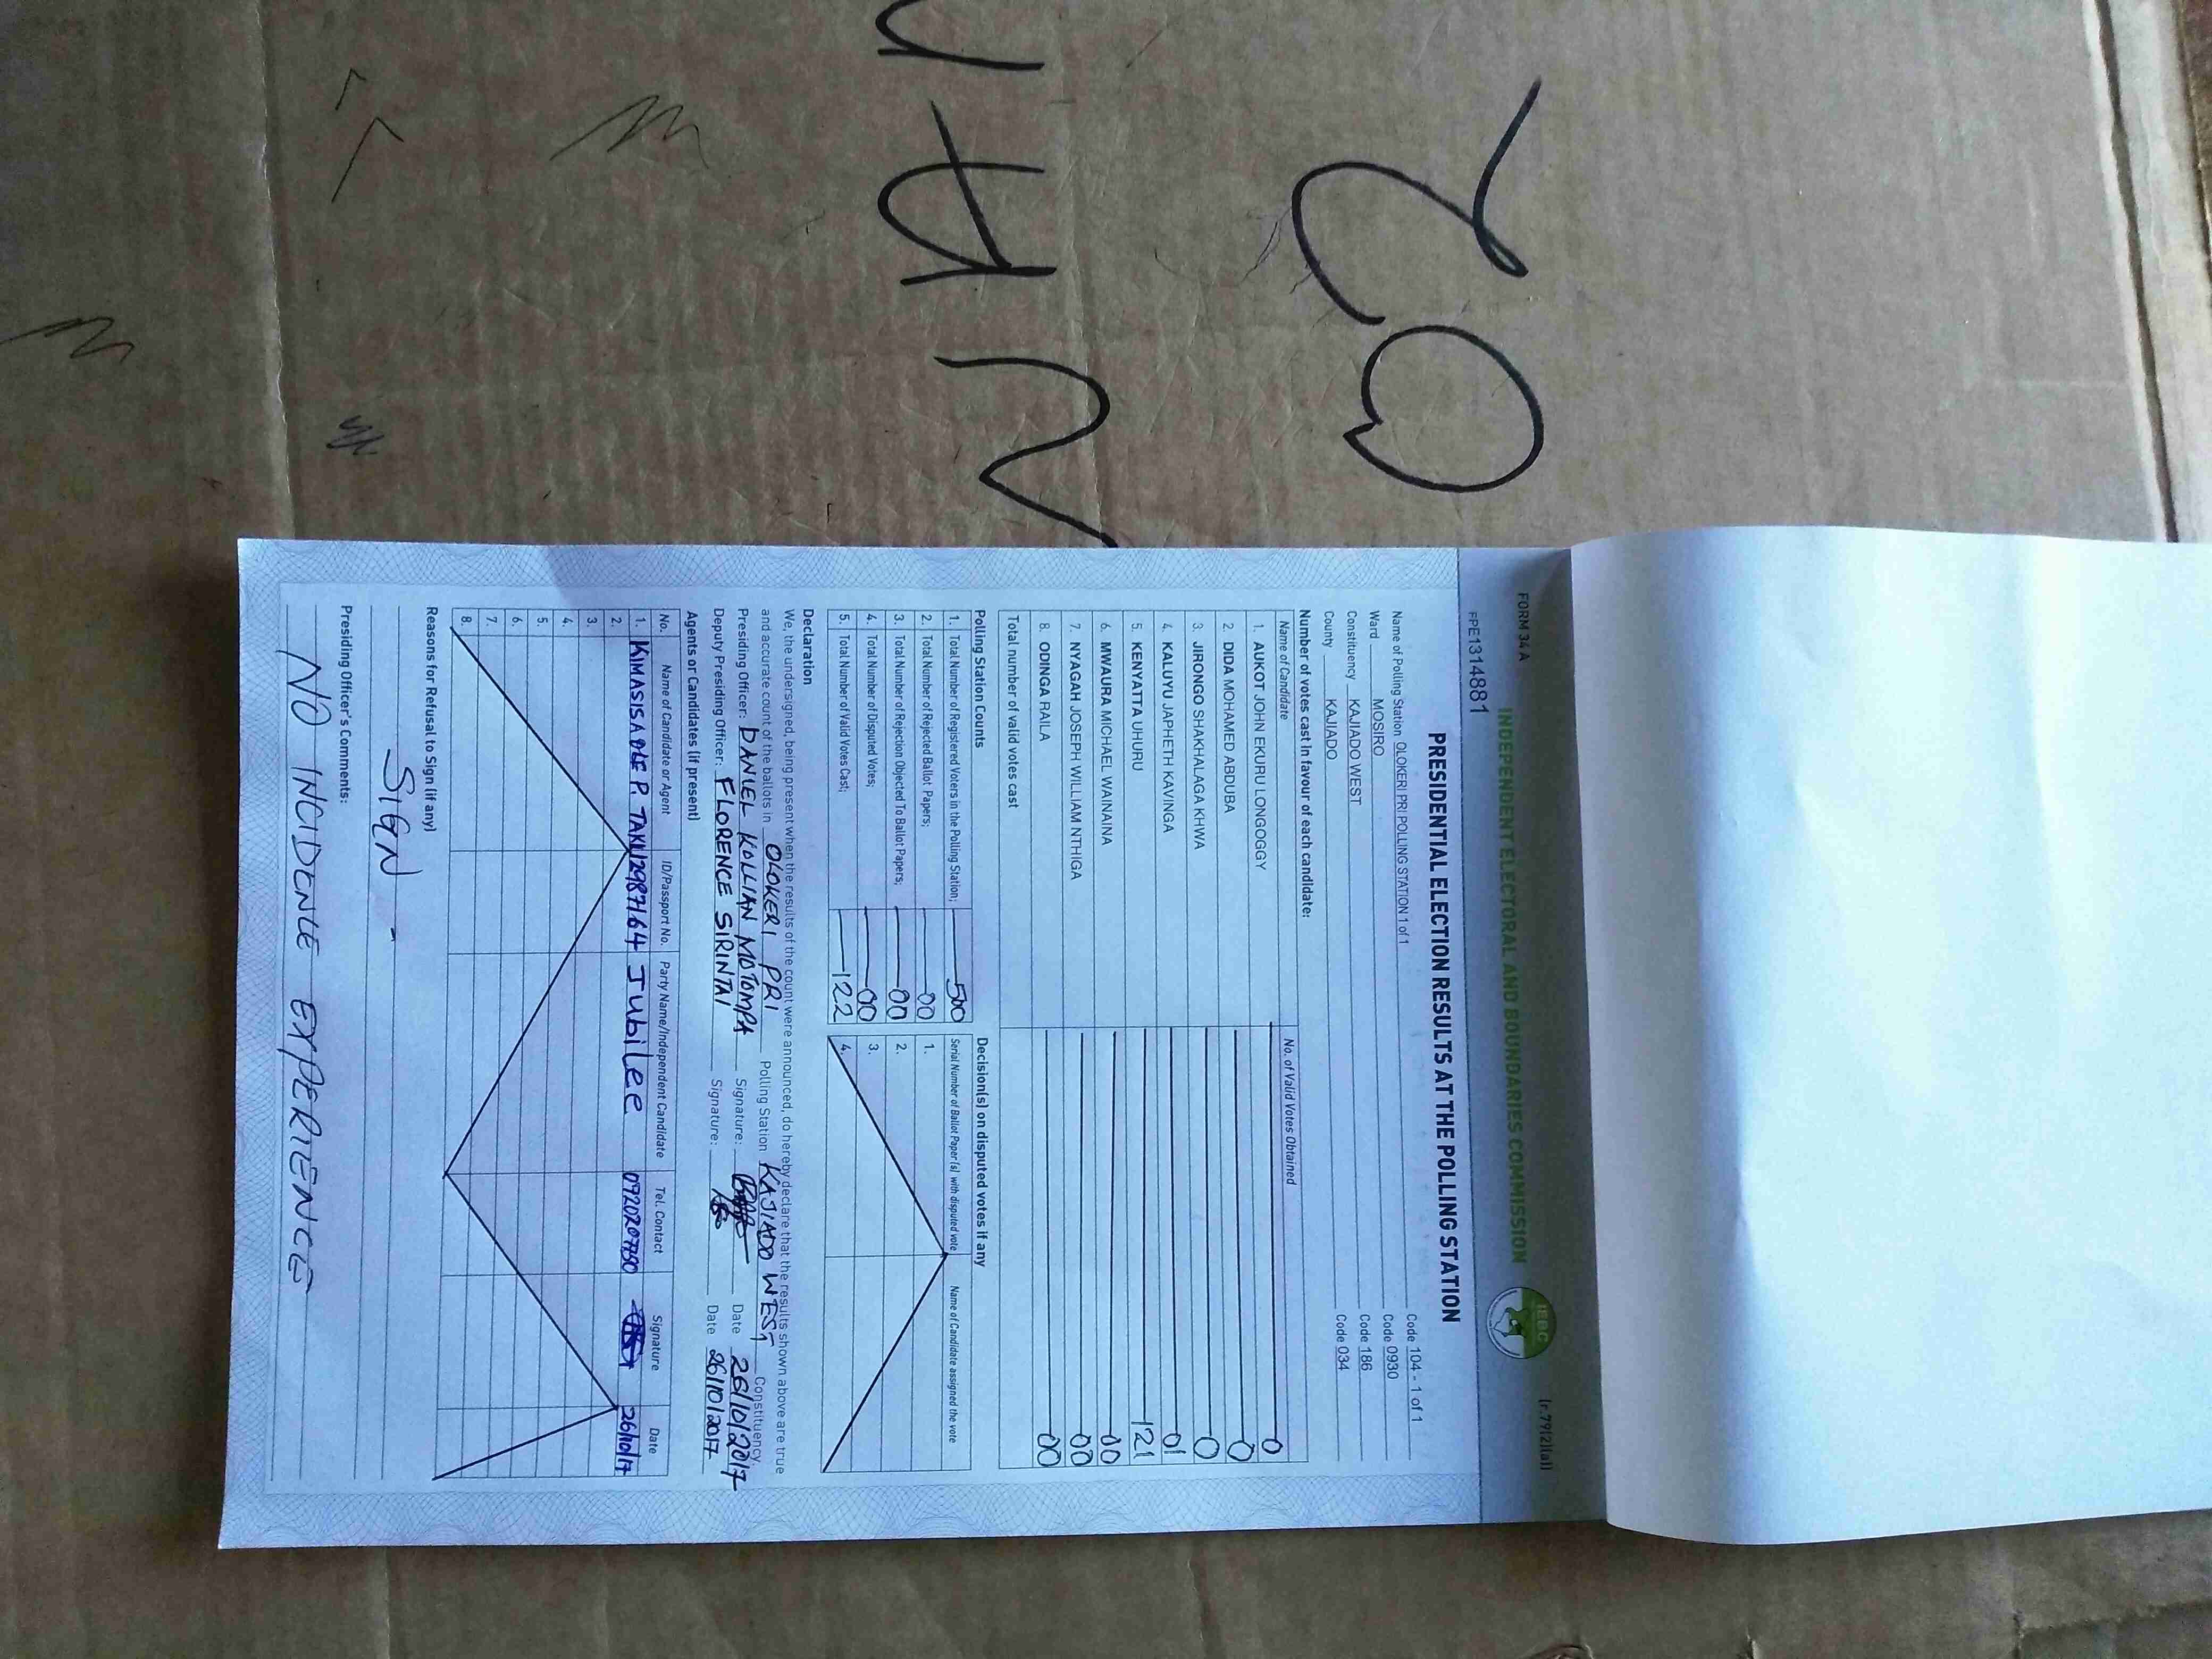 FORM 34 A
(r.79(2)(a))
INDEPENDENT ELECTORAL AND BOUNDARIES COMMISSION
IEBC
FPE1314881
PRESIDENTIAL ELECTION RESULTS AT THE POLLING STATION
Name of Polling Station OLOKERI PRI POLLING STATION 1 of 1 Code 104 - 1 of 1
Ward MOSIRO Code 0930
Constituency KAJIADO WEST Code 186
County KAJIADO Code 034
Number of votes cast in favour of each candidate:
Name of Candidate No. of Valid Votes Obtained
1. AUKOT JOHN EKURU LONGOGGY 0
2. DIDA MOHAMED ABDUBA 0
3. JIRONGO SHAKHALAGA KHWA 0
4. KALUYU JAPHETH KAVINGA 01
5. KENYATTA UHURU 121
6. MWAURA MICHAEL WAINAINA 00
7. NYAGAH JOSEPH WILLIAM NTHIGA 00
8. ODINGA RAILA 00
Total number of valid votes cast
Polling Station Counts
1. Total Number of Registered Voters in the Polling Station; 500
2. Total Number of Rejected Ballot Papers; 00
3. Total Number of Rejection Objected To Ballot Papers; 00
4. Total Number of Disputed Votes; 00
5. Total Number of Valid Votes Cast; 122
Decision(s) on disputed votes if any
Serial Number of Ballot Paper(s) with disputed vote Name of Candidate assigned the vote
1.
2.
3.
4.
Declaration
We, the undersigned, being present when the results of the count were announced, do hereby declare that the results shown above are true
and accurate count of the ballots in OLOKERI PRI Polling Station KAJIADO WEST Constituency
Presiding Officer: DANIEL KOLLIAN MOTOMPA Signature: Date 26/10/2017
Deputy Presiding Officer: FLORENCE SIRINTAI Signature: Date 26/10/2017
Agents or Candidates (if present)
No. Name of Candidate or Agent ID/Passport No. Party Name/Independent Candidate Tel. Contact Signature Date
1. KIMASISA OLE P. 12987164 Jubilee 0720207790 26/10/17
2.
3.
4.
5.
6.
7.
8.
Reasons for Refusal to Sign (if any)
SIGN -
Presiding Officer's Comments:
NO INCIDENCE EXPERIENCE